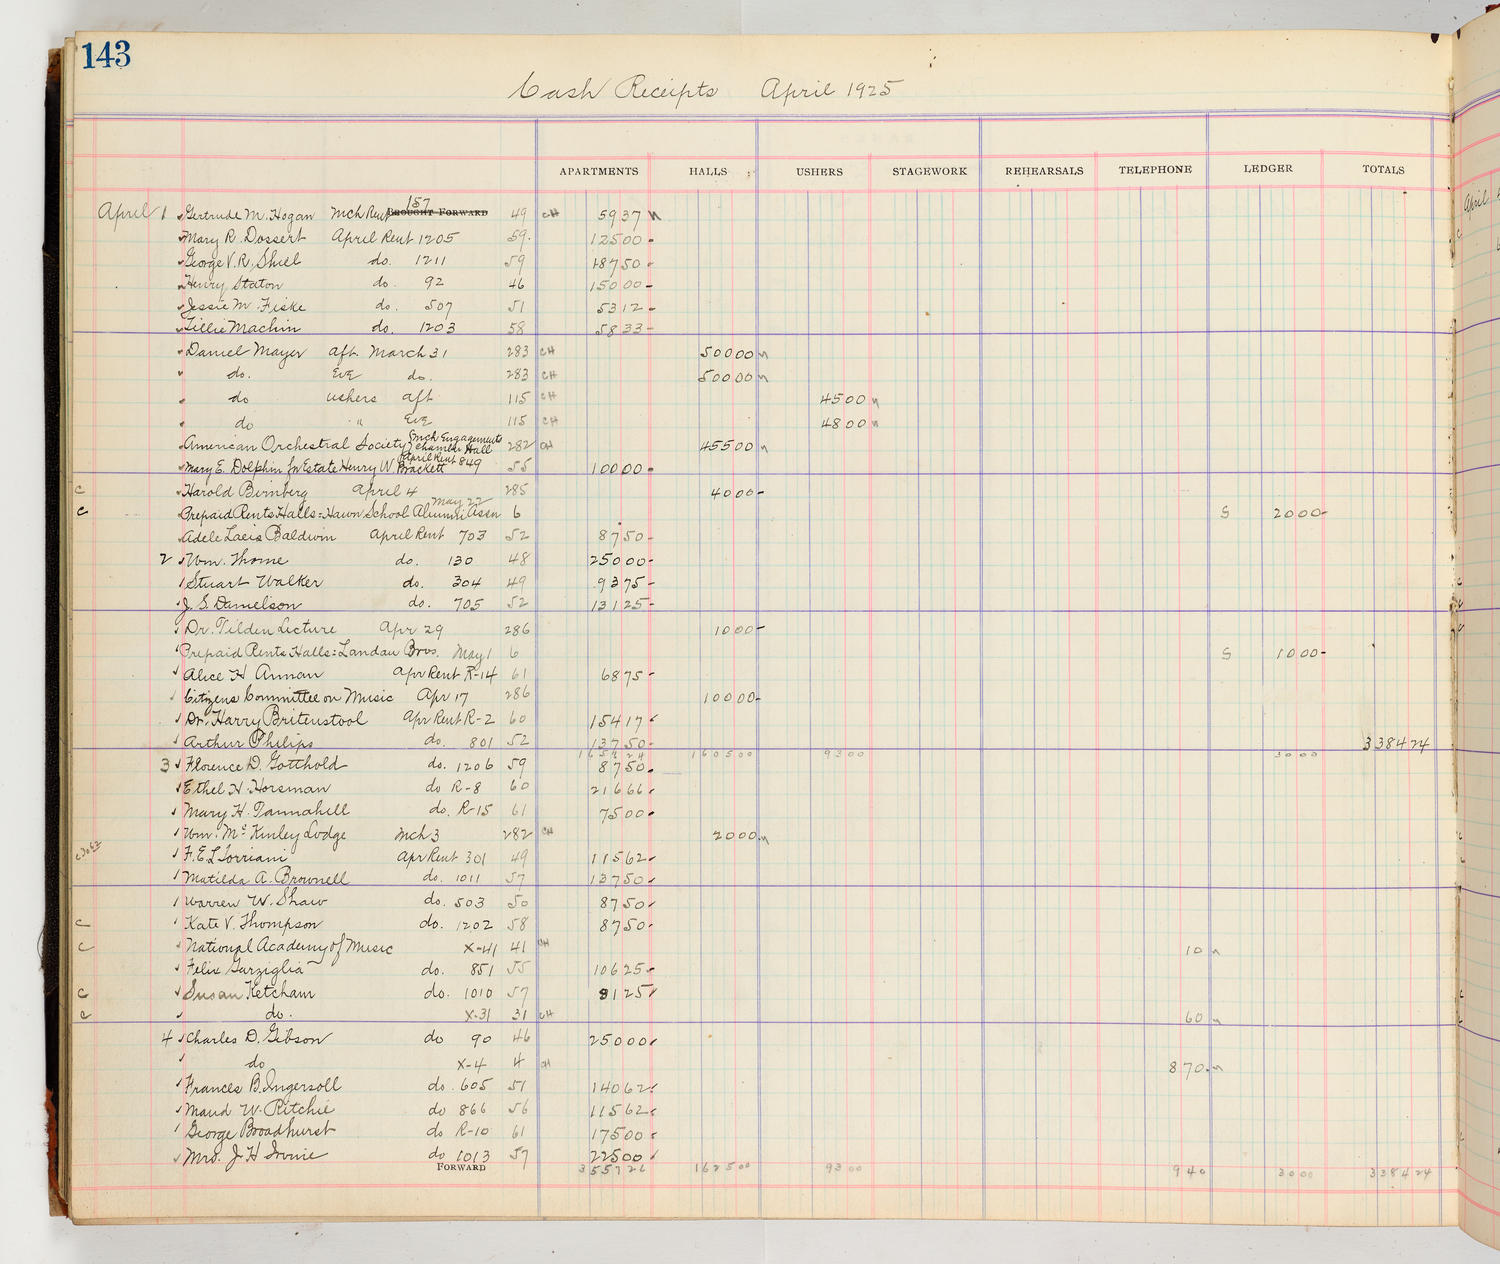 143
Cash Receipts April 1925
APARTMENTS HALLS USHERS STAGEWORK REHEARSALS TELEPHONE LEDGER TOTALS
April 1 Gertrude M. Hogan Mch Rent 157 BROUGHT FORWARD 49 CH 5937
Mary R. Dossert April Rent 1205 59 12500
George V. R. Shiel do. 1211 59 18750
Henry Staton do. 92 46 15000
Jessie M. Fiske do. 507 51 5312
Lillie Machin do. 1203 58 5833
Daniel Mayer aft. March 31 283 CH 50000
do. Eve do. 283 CH 50000
do ushers aft 115 CH 4500
do " Eve 115 CH 4800
American Orchestral Society Mch Engagements Chamber Hall 282 CH 45500
Mary E. Dolphin for Estate Henry W. Brackett April Rent 849 55 10000
c Harold Birnberg April 4 285 4000
c Prepaid Rents Halls = Hawn School Alumni Assn May 22 6 S 2000
Adele Laeis Baldwin April Rent 703 52 8750
2 Wm. Thorne do. 130 48 25000
Stuart Walker do. 304 49 9375
J. S. Danielson do. 705 52 13125
Dr. Tilden Lecture Apr 29 286 1000
Prepaid Rents Halls: Landau Bros. May 1 6 S 1000
Alice H Annan Apr Rent R-14 61 6875
Citizens Committee on Music Apr 17 286 10000
Dr. Harry Britenstool Apr Rent R-2 60 15417
Arthur Philips do. 801 52 13750 338424
165424 160500 9300 3000
3 Florence D. Gotthold do. 1206 59 8750
Ethel H. Horsman do R-8 60 21666
Mary H. Tannahill do. R-15 61 7500
Wm. McKinley Lodge Mch 3 282 CH 2000
F. E. L Torriani Apr Rent 301 49 11562
Matilda A. Brownell do. 1011 57 13750
Warren W. Shaw do. 503 50 8750
c Kate V. Thompson do. 1202 58 8750
c National Academy of Music X-41 41 CH 10
Felix Garziglia do. 851 55 10625
c Susan Ketcham do. 1010 57 8125
c do. X-31 31 CH 60
4 Charles D. Gibson do 90 46 25000
do X-4 4 CH 870
Frances B. Ingersoll do. 605 51 14062
Maud W. Ritchie do 866 56 11562
George Broadhurst do R-10 61 17500
Mrs. J H Irvine do 1013 57 22500
FORWARD 355726 162500 9300 940 3000 338424
April